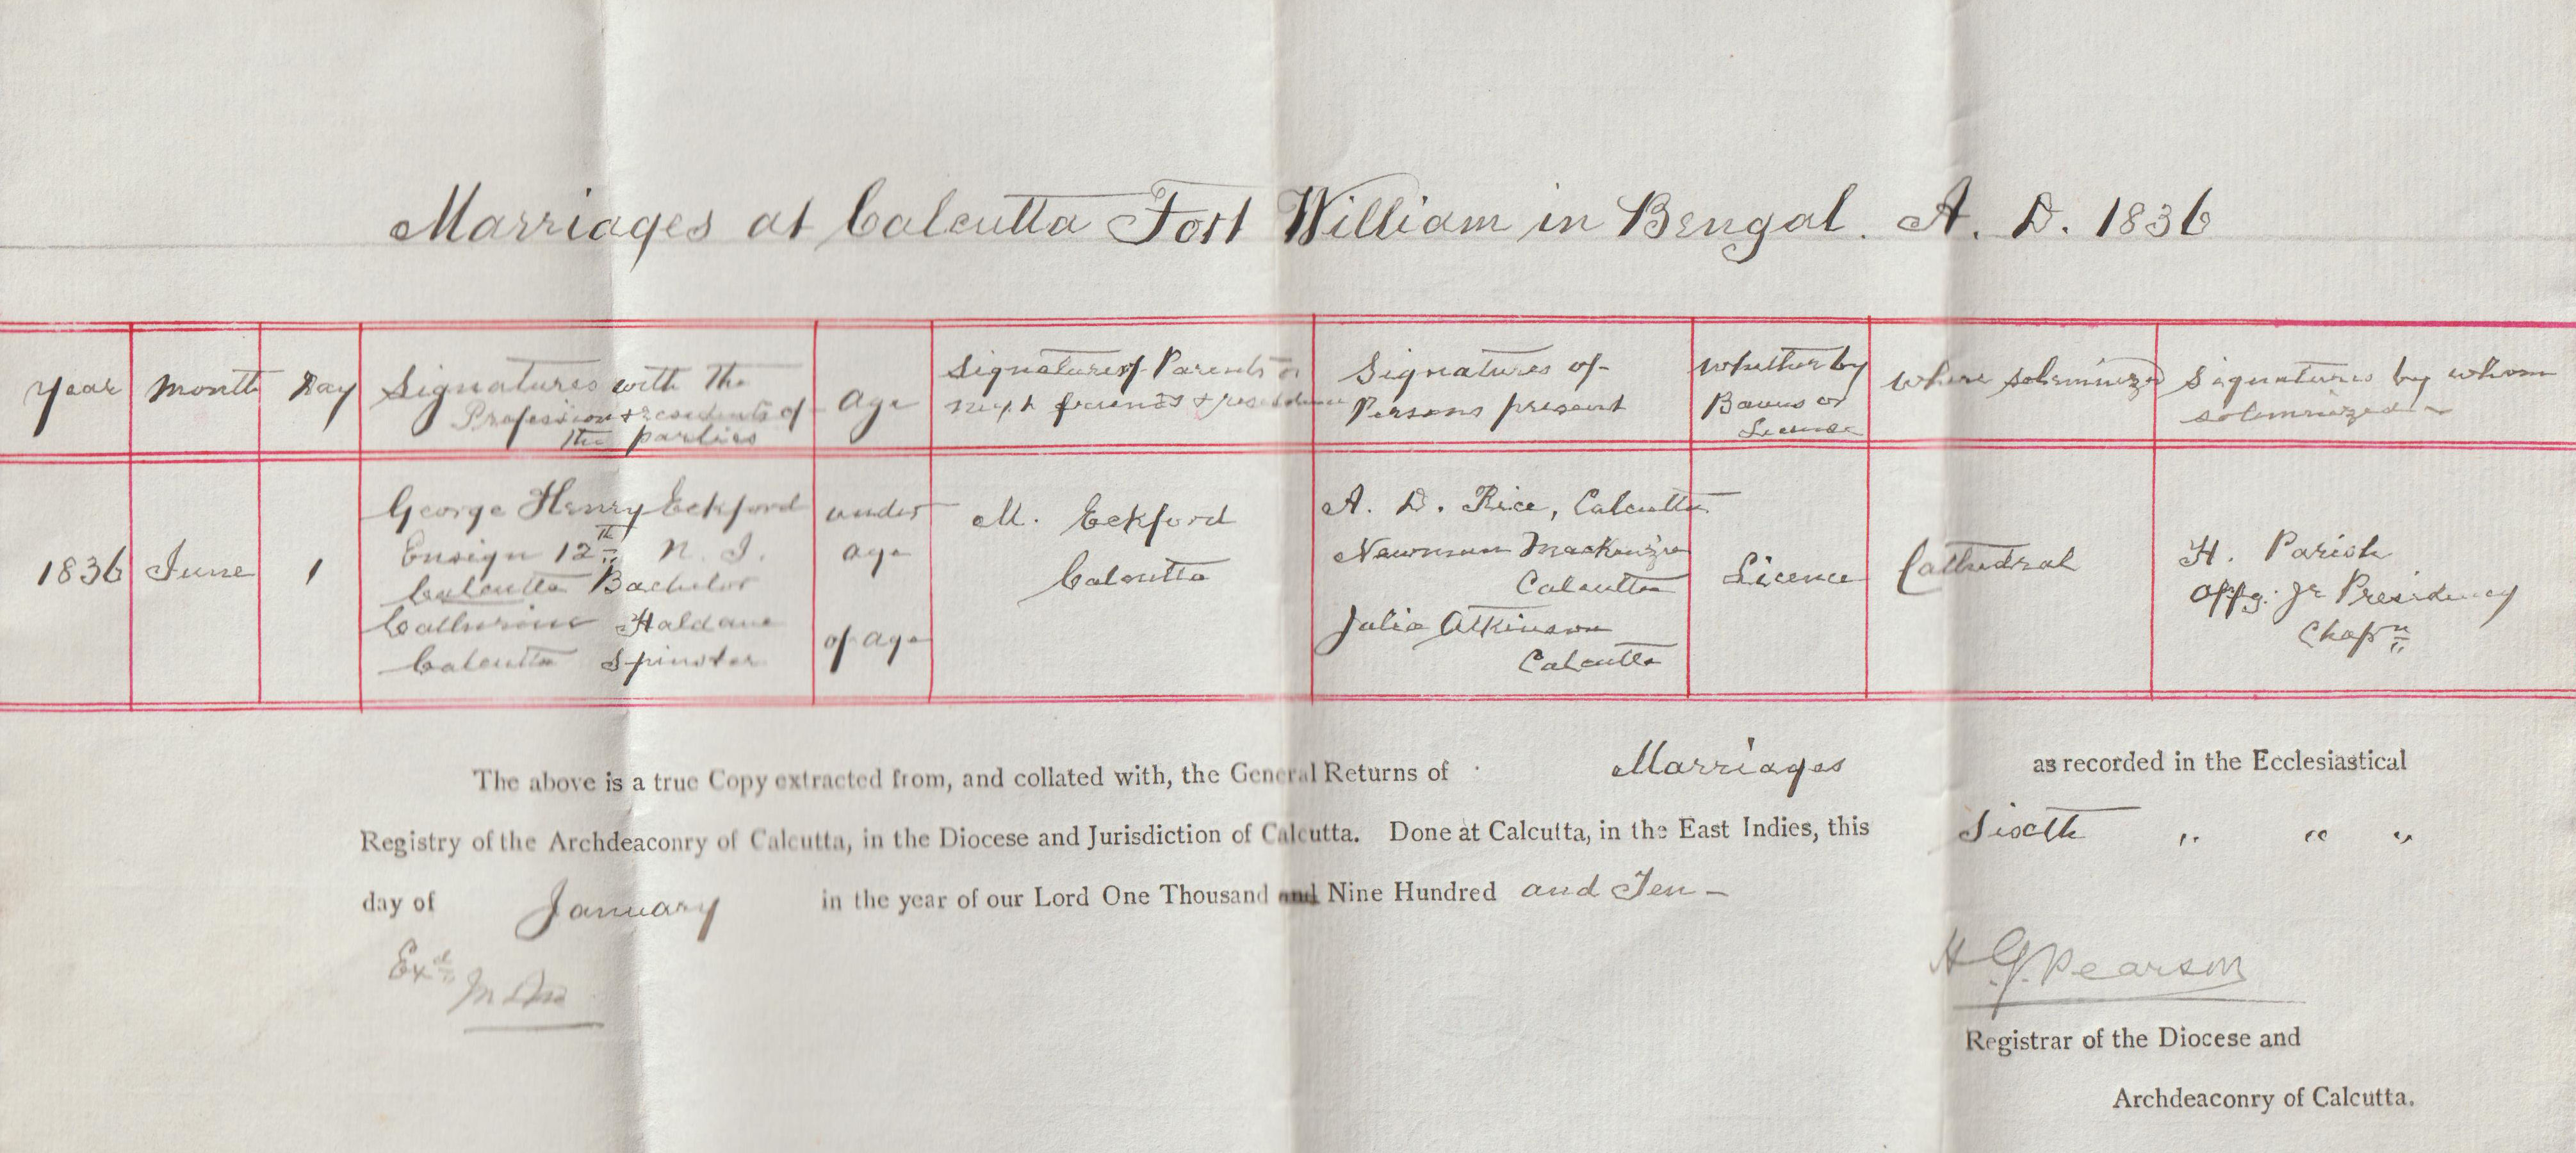 Marriages at Calcutta Fort William in Bengal. A. D. 1836
Year
Month
Day
Signatures with the
Profession & residents of
the parties
age
Signatures of Parents or
next friends & residence
Signatures of
Persons present
Whether by
Banns or
License
Where solemnized
Signatures by whom
solemnized
1836
June
1
George Henry Eckford
Ensign 12th N. I.
Calcutta Bachelor
Catherine Haldane
Calcutta Spinster
under
age
of age
M. Eckford
Calcutta
A. D. Rice, Calcutta
Newman Mackenzie
Calcutta
Julia Atkinson
Calcutta
Licence
Cathedral
H. Parish
Offg: Jr Presidency
Chapn
The above is a true Copy extracted from, and collated with, the General Returns of Marriages as recorded in the Ecclesiastical
Registry of the Archdeaconry of Calcutta, in the Diocese and Jurisdiction of Calcutta. Done at Calcutta, in the East Indies, this Sixth " " "
day of January in the year of our Lord One Thousand and Nine Hundred and Ten -
Exd
H G. Pearson
Registrar of the Diocese and
Archdeaconry of Calcutta.